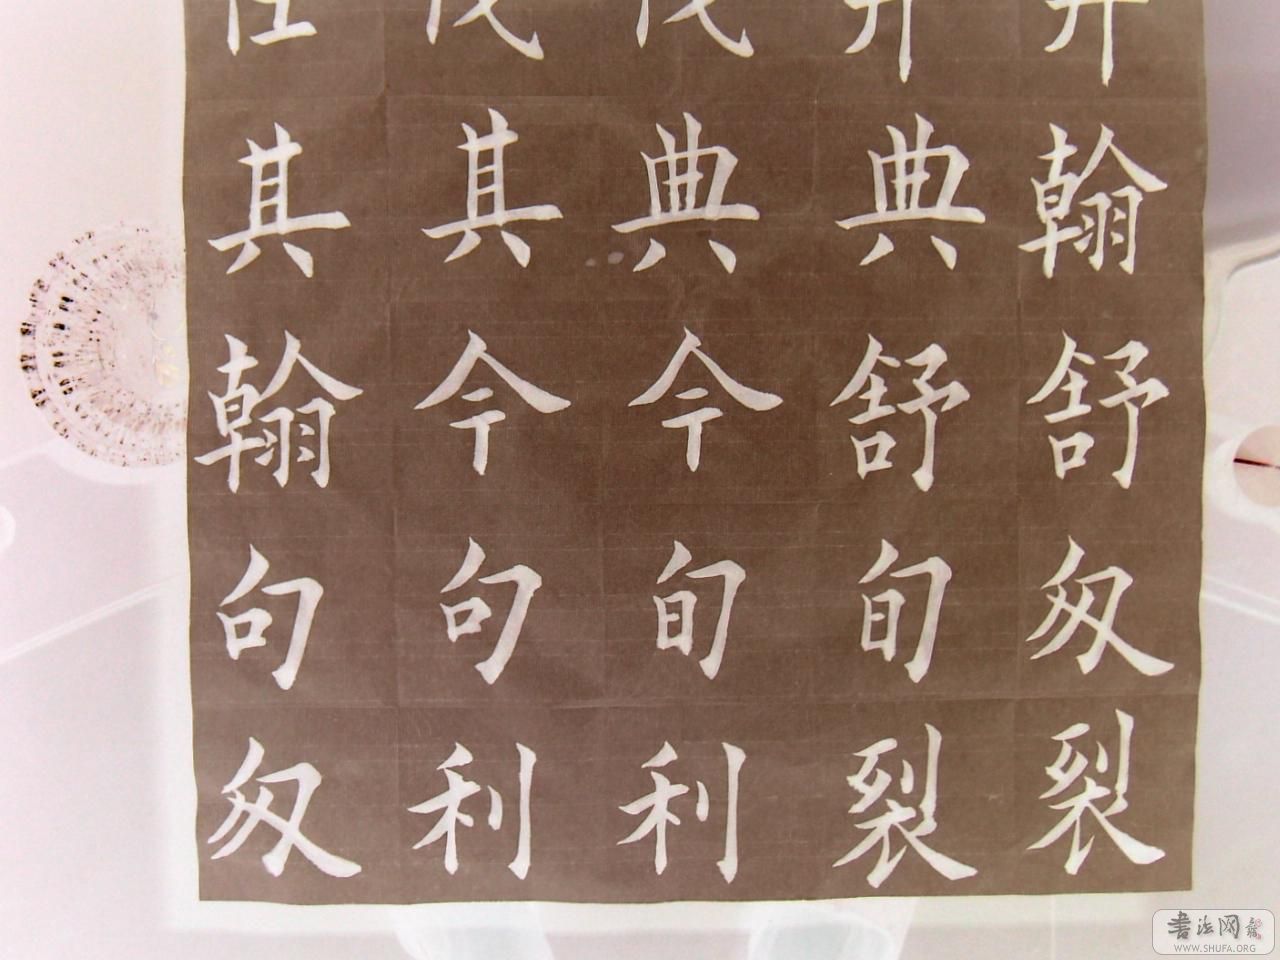 其其典典翰
翰今今舒舒
句句旬旬匆
匆利利裂裂
書法网
WWW.SHUFA.ORG